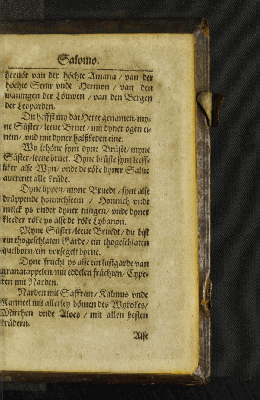 Salomo.
hervör van der höchte Amana / van der
höchte Senir vnde Hermon / van den
waningen der Löuwen / van den Bergen
der Leoparden.
Du heffst my dat Herte genamen / my-
ne Süster / leeue Bruet / mit dyner ogen ei-
nem / vnd mit dyner halßkeden eine.
Wo schöne synt dyne Brüste / myne
Süster / leeue bruet. Dyne brüste synt leeff-
liker alse Wyn / vnde de röke dyner Salue
auertrit alle krüde.
Dyne lippen / myne Bruedt / synt alse
drüppende hannichseem / Honnich vnde
melck ys vnder dyner tungen / vnde dyner
kleeder röke ys alse de röke Lybanon.
Myne Süster / leeue Bruedt / du bist
ein thogeschlaten Garde / ein thogeschlaten
quelborn / ein vorsegelt borne.
Dyne frucht ys alse ein lustgarde van
granatappelen / mit eddelen früchten / Cype-
ren mit Narden.
Narden mit Saffran / Kalmus vnde
Kanneel / mit allerley bömen des Wyrokes /
Mirrhen vnde Aloes / mit allen besten
krüdern.
Alse